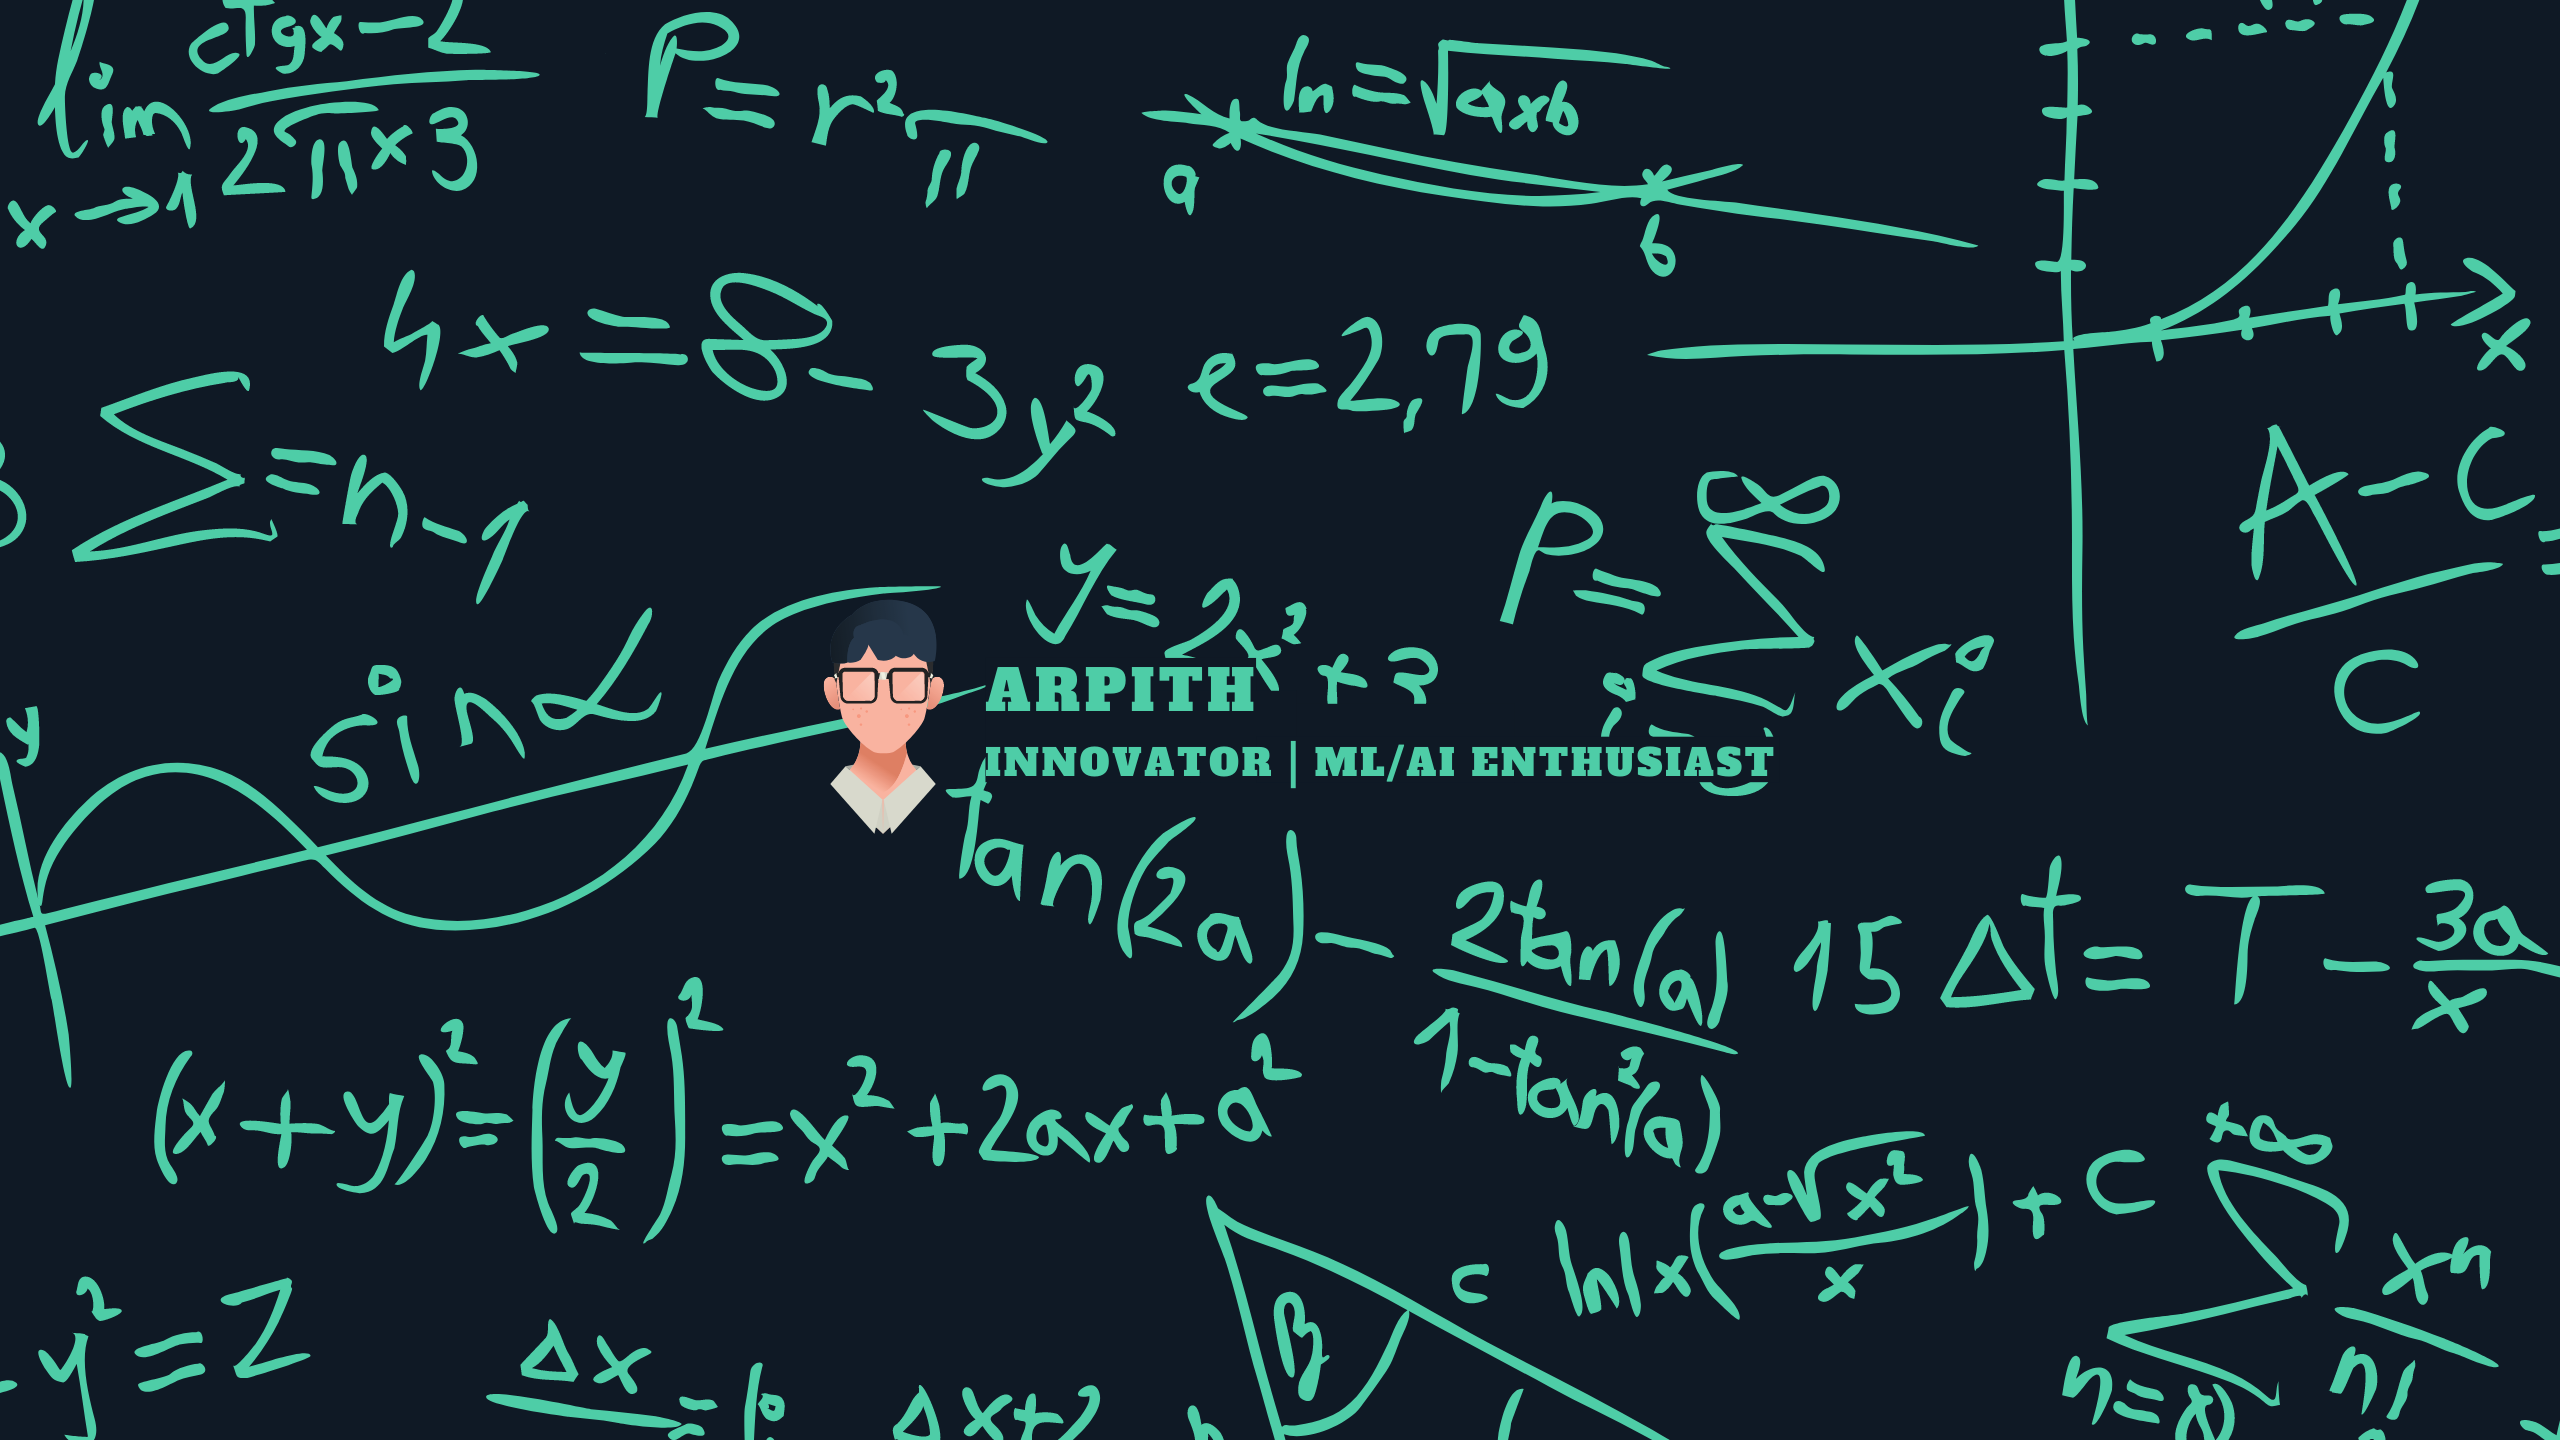 lim x→1 ctgx-2 / 2√π x 3
P = r² √π
ln = √axb
a
b
x
4x = 8 - 3y²
e = 2,79
Σ = n-1
P = ∞ Σ xi
A - C
C
y = 2x² + 2
y
sin α
ARPITH
INNOVATOR | ML/AI ENTHUSIAST
tan(2a) - 2tan(a) / 1-tan²(a)
15 Δt = T - 3a / x
(x+y)² = (y/2)² = x² + 2ax + a²
c
ln|x(a-√x² / x)| + C
+∞ Σ xn
n=
y² = Z
Δx
Δx+2
β